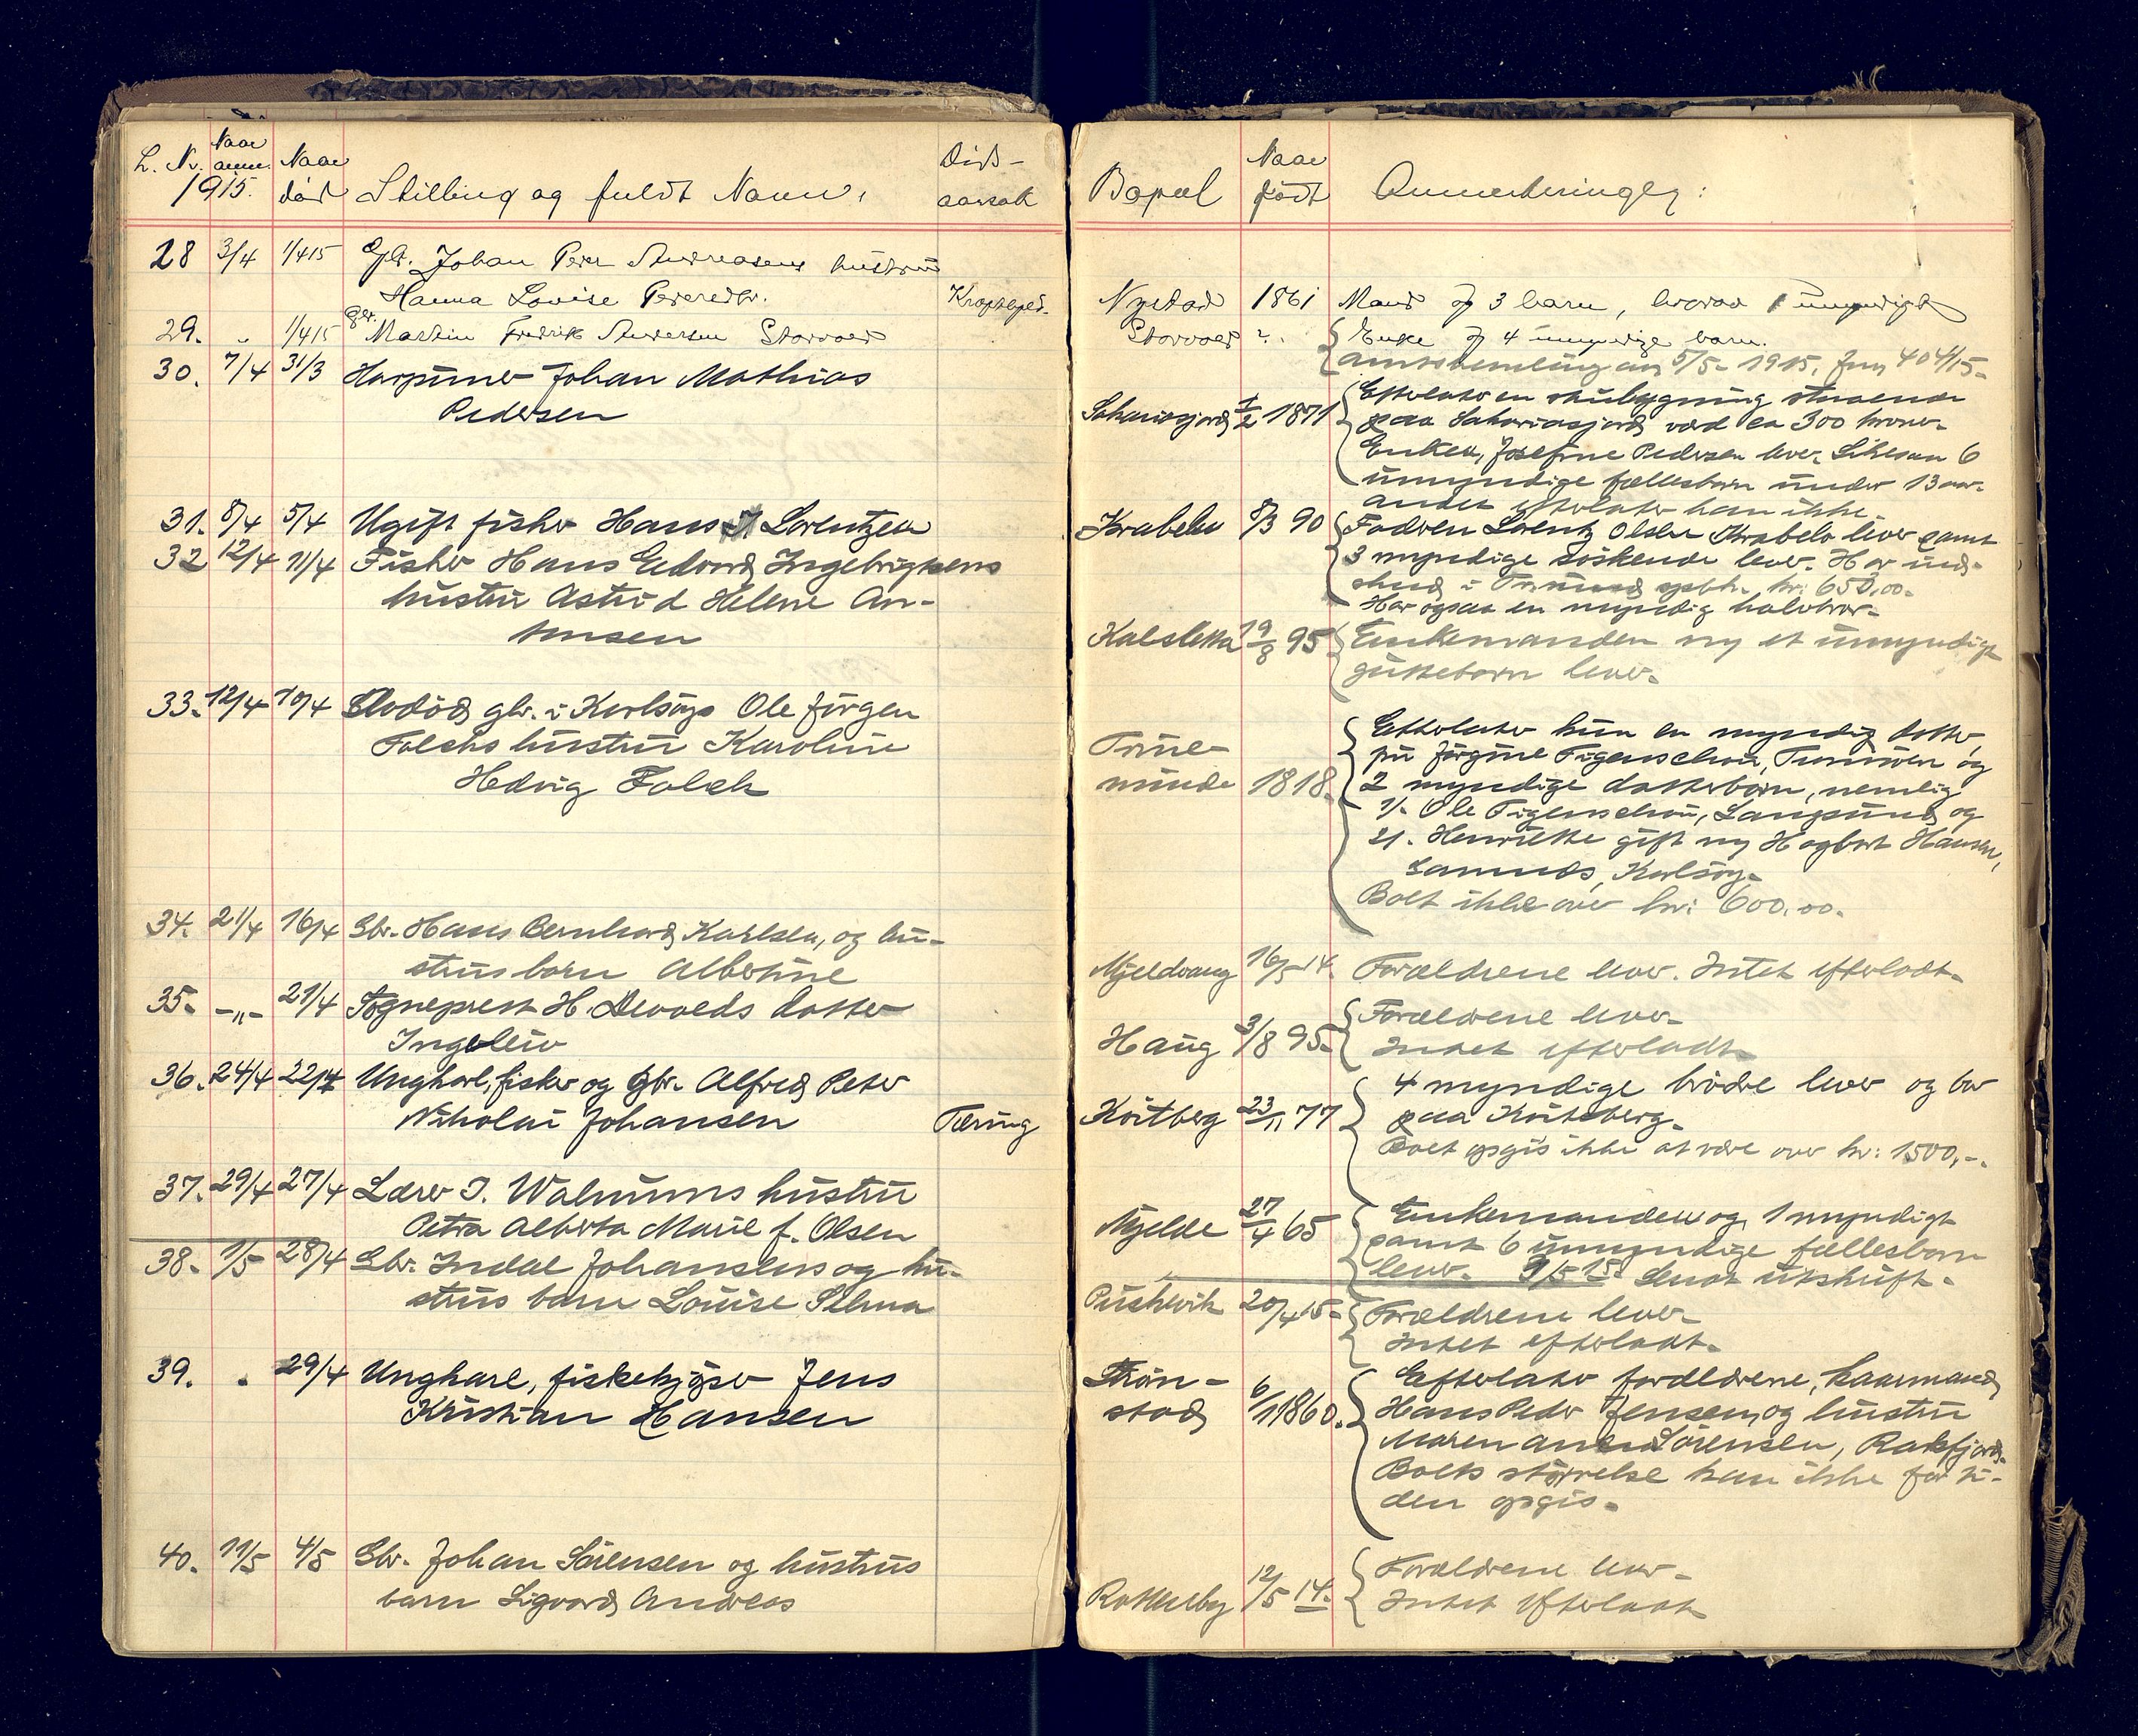 L. Nr.
1915.
Naar
anm.
Naar
død
Stilling og fuldt Navn.
Døds-
aarsak
28 3/4 1/4 15 Gbr. Johan Peder Andreasens hustru
Hanna Lovise Pedersdtr.
29. " 1/4 15 Gbr. Martin Fredrik Andersen Storvold
30. 7/4 31/3 Harpuner Johan Mathias
Pedersen
31. 8/4 5/4 Ugift fisker Hans Lorentzen
32 12/4 11/4 Fisker Hans Edvard Ingebrigtsens
hustru Astrid Helene An-
tonsen
33. 12/4 10/4 Avdød gbr. i Karlsøy Ole Jørgen
Falchs hustru Karoline
Hedvig Falch
34. 21/4 16/4 Gbr. Hans Bernhard Karlsen, og hu-
strus barn Albertine
35. -"- 21/4 Sogneprest H. Devolds datter
Ingeleiv
36. 24/4 22/4 Ungkarl, fisker og gbr. Alfred Peter
Nikolai Johansen Tæring
37. 29/4 27/4 Lærer I. Walnums hustru
Petra Alberta Marie f. Olsen
38. 1/5 28/4 Gbr. Indal Johansens og hu-
strus barn Louise Selma
39. " 29/4 Ungkarl, fiskekjøper Jens
Kristian Hansen
40. 11/5 4/5 Gbr. Johan Sørensen og hustrus
barn Sigvard Andreas
Bopæl
Naar
født
Anmerkninger:
Nystad 1861 Mand og 3 barn, hvorav 1 umyndigt
Storvold ? Enke og 4 umyndige barn.
5/5 - 1915. Jnr 404/15.
1/2 1871 Efterlater en stubygning staaende
paa verd ca 300 kroner.
Enken, Josefine Pedersen lever. Likesaa 6
umyndige fællesbarn under 13 aar.
andet efterlater han ikke.
Krabelv 8/3 90 Fadren Lorentz Olsen Krabelv lever samt
3 myndige søskende lever. Har ind-
skud i kr: 650,00.
Har ogsaa en myndig halvbror.
Kalsletta 19/8 95 Enkemanden og et umyndigt
guttebarn lever.
münde 1818. Efterlater hun en myndig datter,
fru Jørgine Figenschou, og
2 myndige datterbørn, nemlig
1/. Ole Figenschou, Langsund og
2/. Henriette gift m/ Hagbart Hansen,
Karlsøy.
Boet ikke over kr: 600.00.
Mjeldvang 16/5 14. Forældrene lever. Intet efterladt.
Haug 3/8 95. Forældrene lever.
Intet efterladt.
Kvitberg 23/11 77 4 myndige brødre lever og bor
paa Kvitberg.
Boet opgis ikke at være over kr: 1500,-.
Mjelde 27/4 65 Enkemanden og 1 myndigt
samt 6 umyndige fællesbarn
lever. 9/5 15. Sendt utskrift.
20/4 15. Forældrene lever
Intet efterladt.
stad 6/11 1860. Efterlater forældrene, kaarmand
Hans Peder Jensen, og hustru
Maren Anna Sørensen, Rakfjord.
Boets størrelse kan ikke for ti-
den opgis.
Rottenby 12/5 14. Forældrene lever.
Intet efterladt